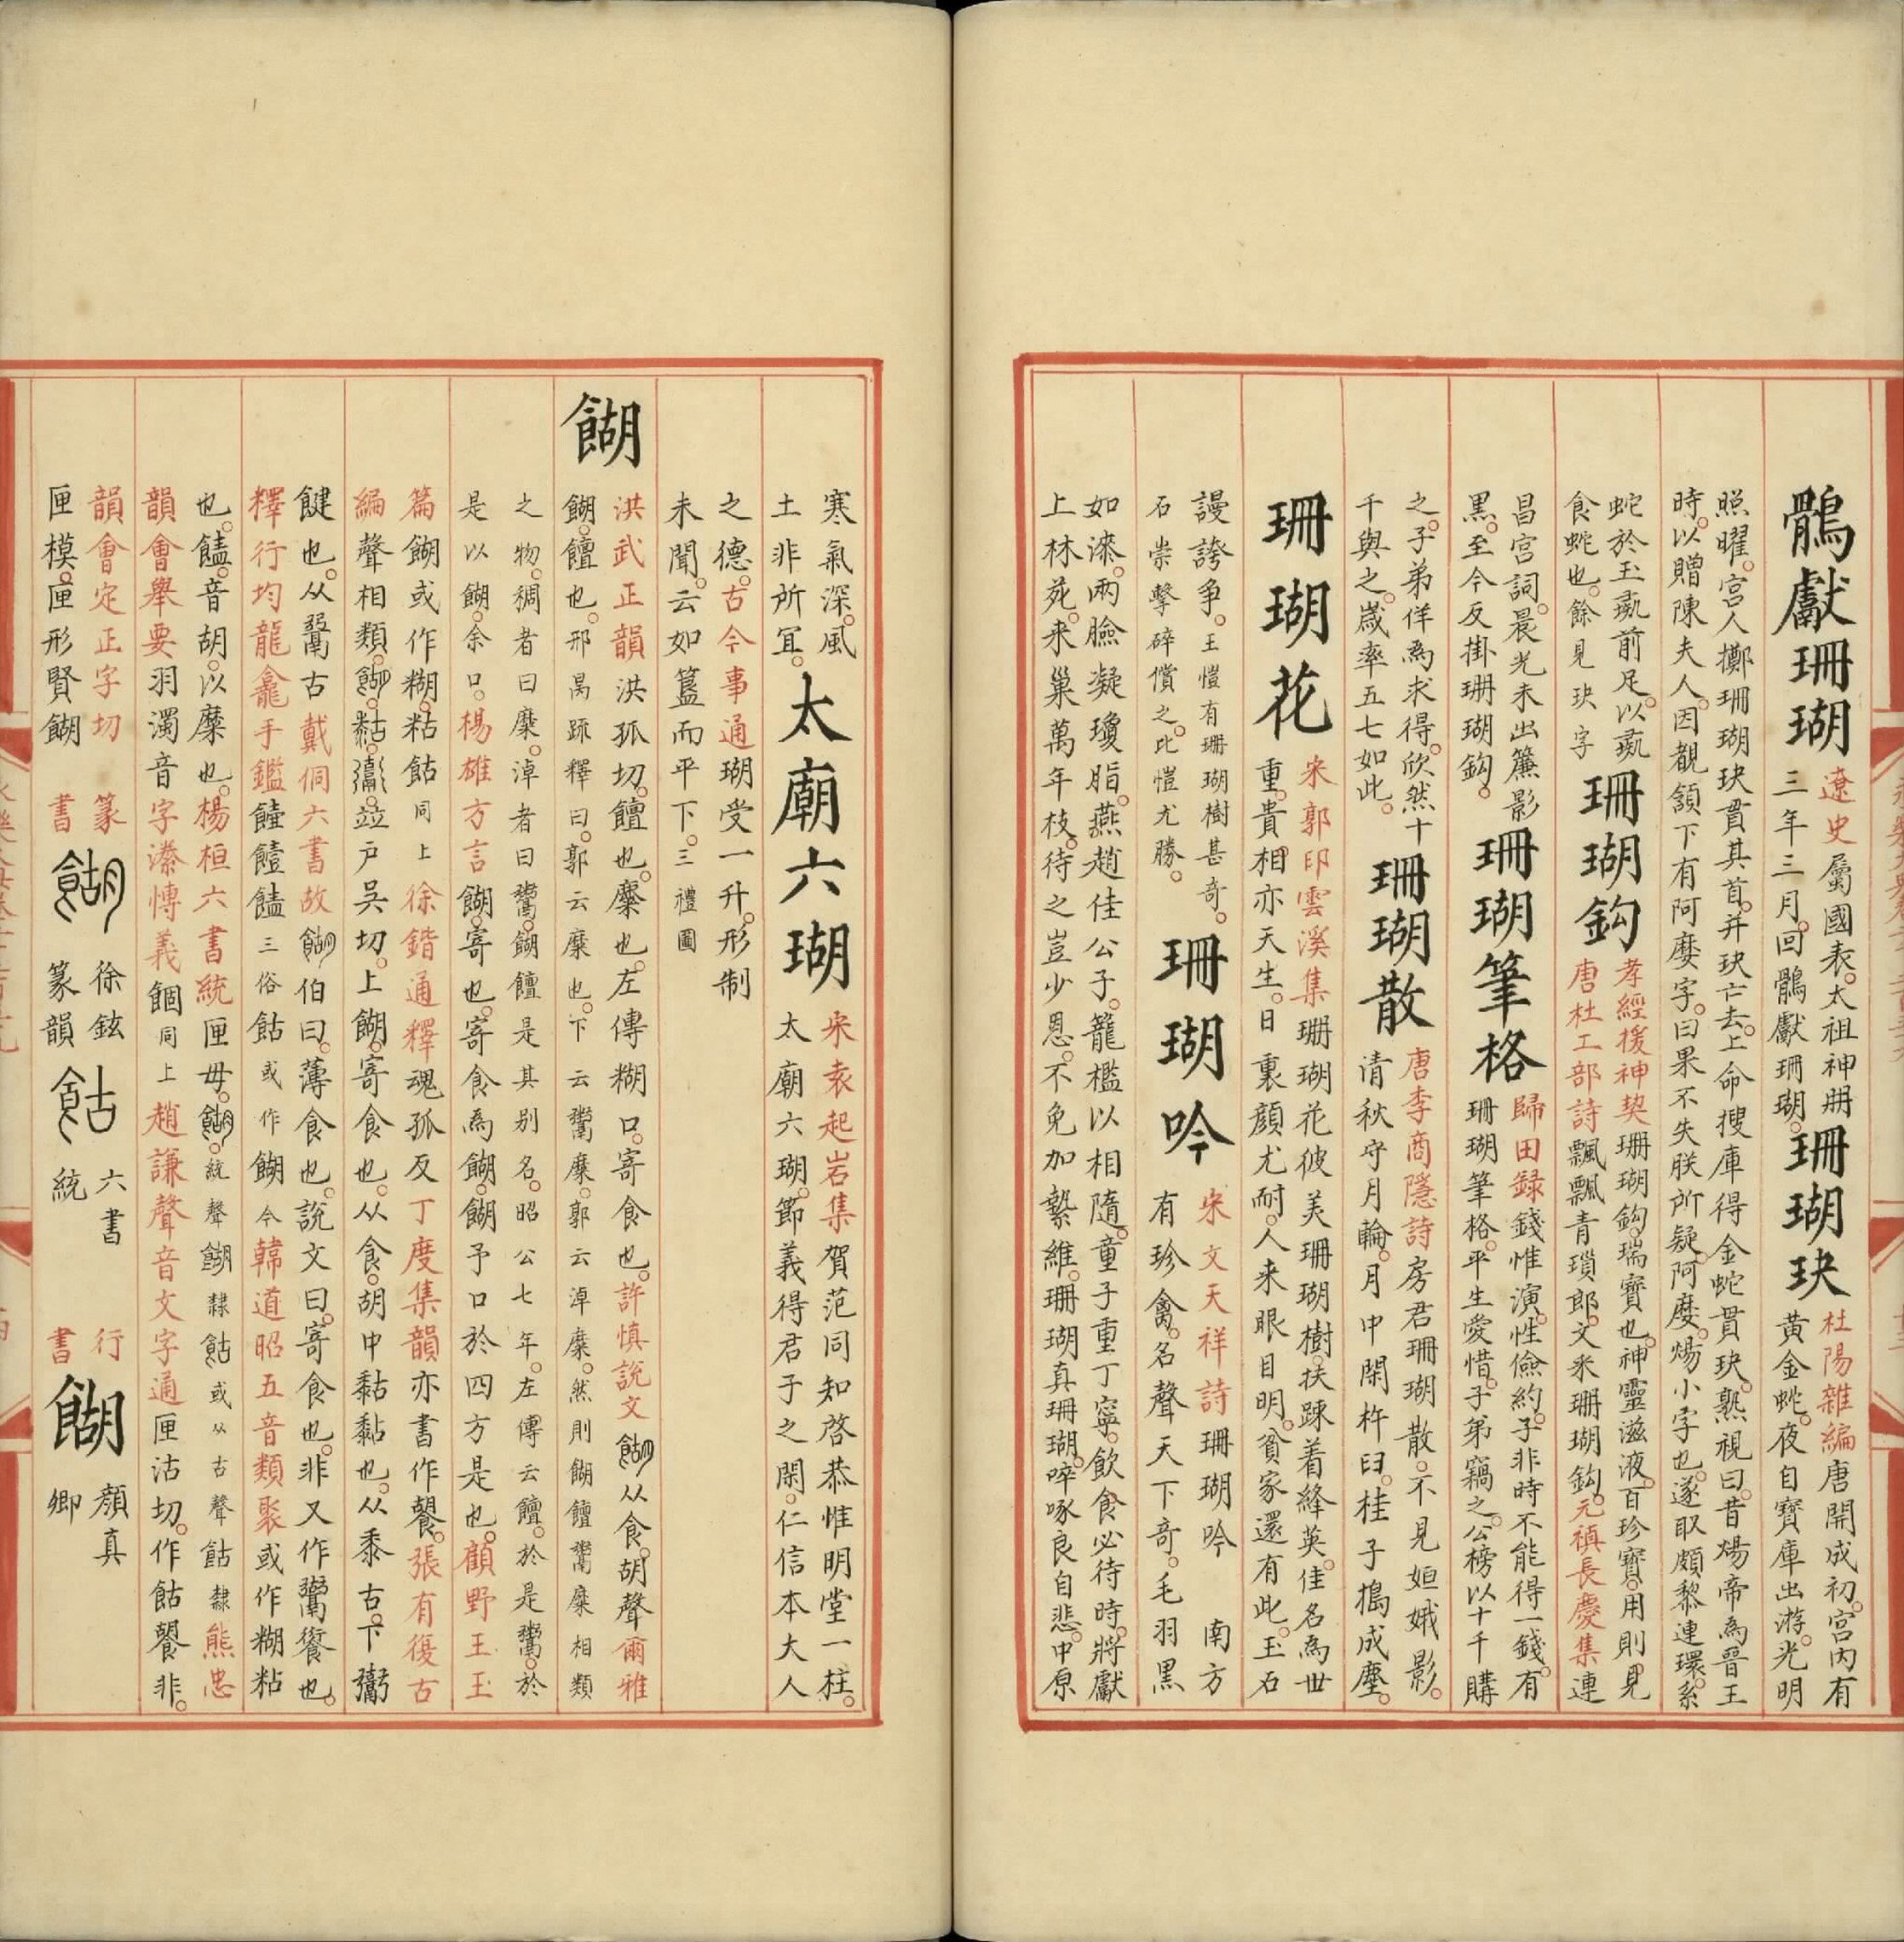 鶻獻珊瑚
遼史屬國表。太祖神冊
三年三月。回鶻獻珊瑚。
珊瑚玦
杜陽雜編唐開成初。宮內有
黃金蛇。夜自寶庫出游。光明
照曜。宮人擲珊瑚玦貫其首。并玦亡去。上命搜庫得金蛇貫玦。熟視曰。昔煬帝為晉王
時。以贈陳夫人。因覩頷下有阿麼字。曰果不失朕所疑。阿麼。煬小字也。遂取頗黎連環。系
蛇於玉彘前足。以彘
食蛇也。餘見玦字
珊瑚鈎
孝經援神契珊瑚鈎。瑞寶也。神靈滋液。百珍寶。用則見
唐杜工部詩飄飄青瑣郎。文采珊瑚鈎。元禎長慶集連
昌宮詞。晨光未出簾影
黑。至今反掛珊瑚鈎。
珊瑚筆格
歸田録錢惟演。性儉約。子非時不能得一錢。有
珊瑚筆格。平生愛惜。子弟竊之。公榜以十千購
之。子弟佯為求得。欣然十
千與之。嵗率五七如此。
珊瑚散
唐李商隱詩房君珊瑚散。不見姮娥影。
清秋守月輪。月中閑杵臼。桂子搗成塵。
珊瑚花
宋郭印雲溪集珊瑚花彼美珊瑚樹。扶踈着絳英。佳名為世
重。貴相亦天生。日裏顔尤耐。人来眼目明。貧家還有此。玉石
謾誇争。王愷有珊瑚樹甚奇。
石崇擊碎償之。比愷尤勝。
珊瑚吟
宋文天祥詩珊瑚吟 南方
有珍禽。名聲天下奇。毛羽黑
如漆。兩臉凝瓊脂。燕趙佳公子。籠檻以相隨。童子重丁寧。飲食必待時。將獻
上林苑。来巢萬年枝。待之豈少恩。不免加縶維。珊瑚真珊瑚。啐啄良自悲。中原
寒氣深。風
土非所冝。
太廟六瑚
宋袁起岩集賀范同知啓恭惟明堂一柱。
太廟六瑚。節義得君子之閑。仁信本大人
之德。古今事通瑚受一升。形制
未聞。云如簋而平下。三禮圖
餬
洪武正韻洪孤切。饘也。糜也。左傳糊口。寄食也。許慎說文餬从食。胡聲爾雅
餬。饘也。邢昺䟽釋曰。郭云糜也。下云鬻糜。郭云淖糜。然則餬饘鬻糜相類
之物。稠者曰糜。淖者曰鬻。餬饘是其別名。昭公七年。左傳云饘。於是鬻。於
是以餬。余口。楊雄方言餬。寄也。寄食為餬。餬予口於四方是也。顧野王玉
篇餬或作糊。粘䬴同上徐鍇通釋魂孤反丁度集韻亦書作餐。張有復古
編聲相類。餬。黏。䰞。竝戶吳切。上餬。寄食也。从食。胡中黏黏也。从黍古。下鬻
健也。从鬻古戴侗六書故餬伯曰。薄食也。說文曰。寄食也。非又作鬻饗也。
釋行均龍龕手鑑饐饐饐三俗䬴或作餬今韓道昭五音類聚或作糊粘
也。饐。音胡。以糜也。楊桓六書統匣毋。餬。統聲餬隸䬴或从古聲䬴隸熊忠
韻會舉要羽濁音字潫愽義䭅同上趙謙聲音文字通匣沽切。作䬴餐非。
韻會定正字切
匣模。匣形賢餬
篆
書
餬
徐鉉
篆韻
䬴
六書
統
行
書
餬
顔真
卿